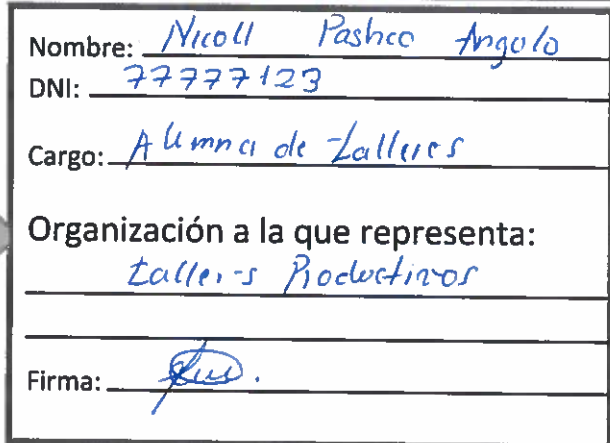 Nombre: Nicoll Pashco Angulo
DNI: 77777123
Cargo: Alumna de talleres
Organización a la que representa:
talleres Productivos
Firma: